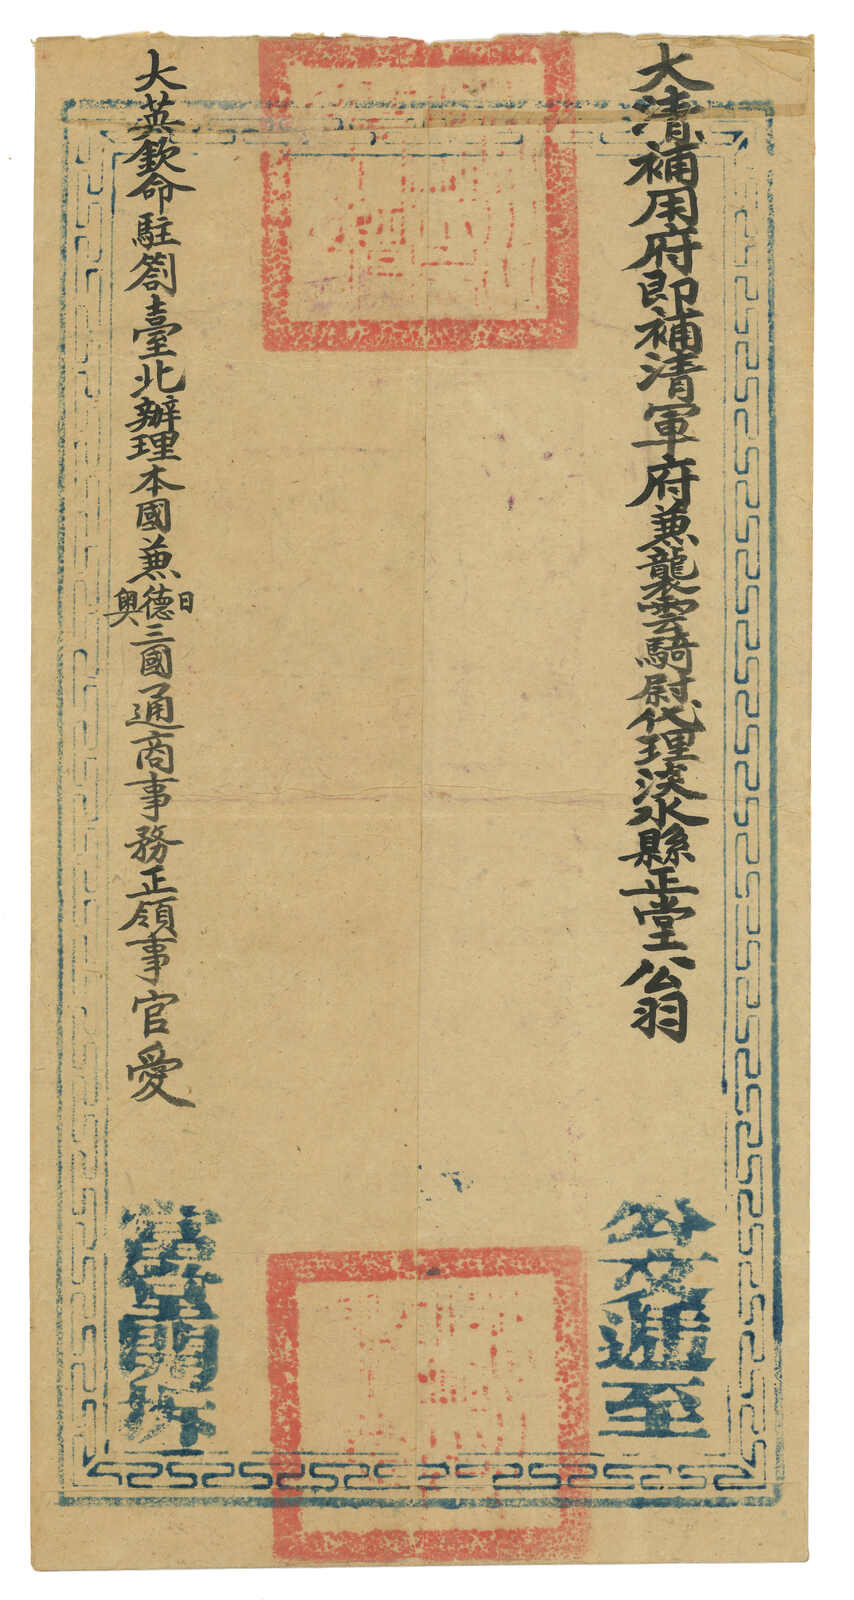 大清補用府即補清軍府兼襲雲騎尉代理淡水縣正堂公翁
公文遞至
大英欽命駐劄臺北辦理本國兼日德奧三國通商事務正領事官愛
當堂開拆